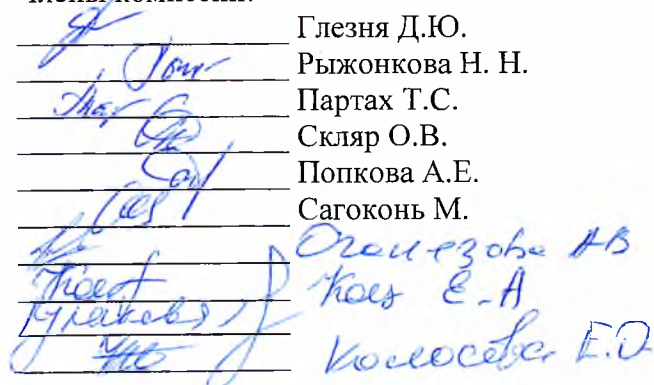 Члены комиссии:
Глезня Д.Ю.
Рыжонкова Н. Н.
Партах Т.С.
Скляр О.В.
Попкова А.Е.
Сагоконь М.
Оганезова АВ
Кац Е.А
Колосова Е.О